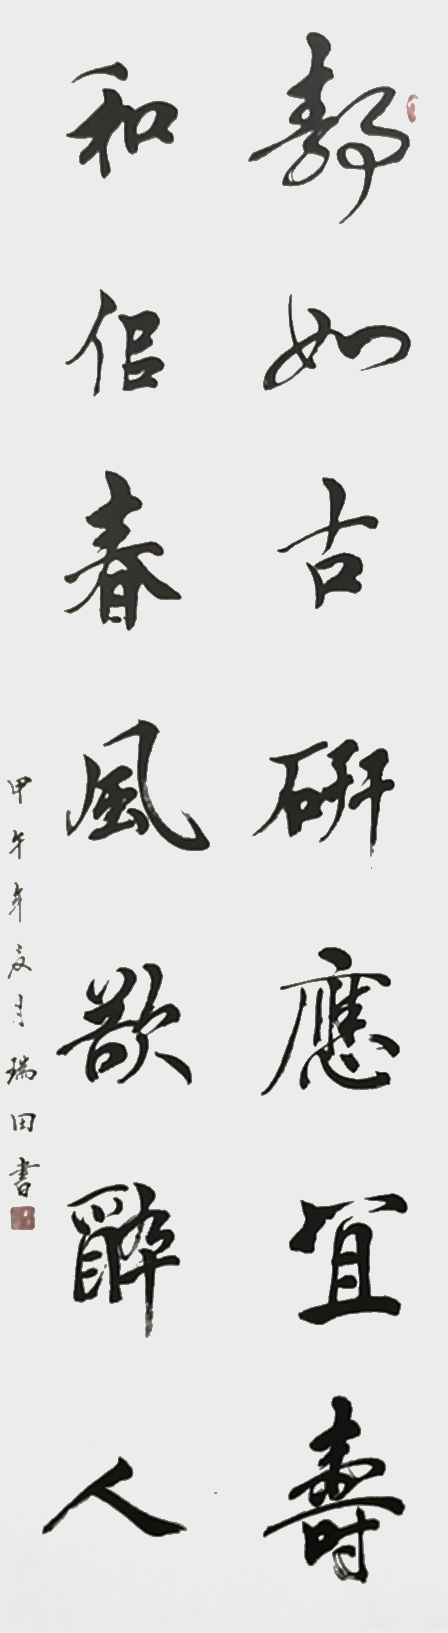 靜如古研應宜壽
和侣春風欲醉人
甲午年夏月瑞田书